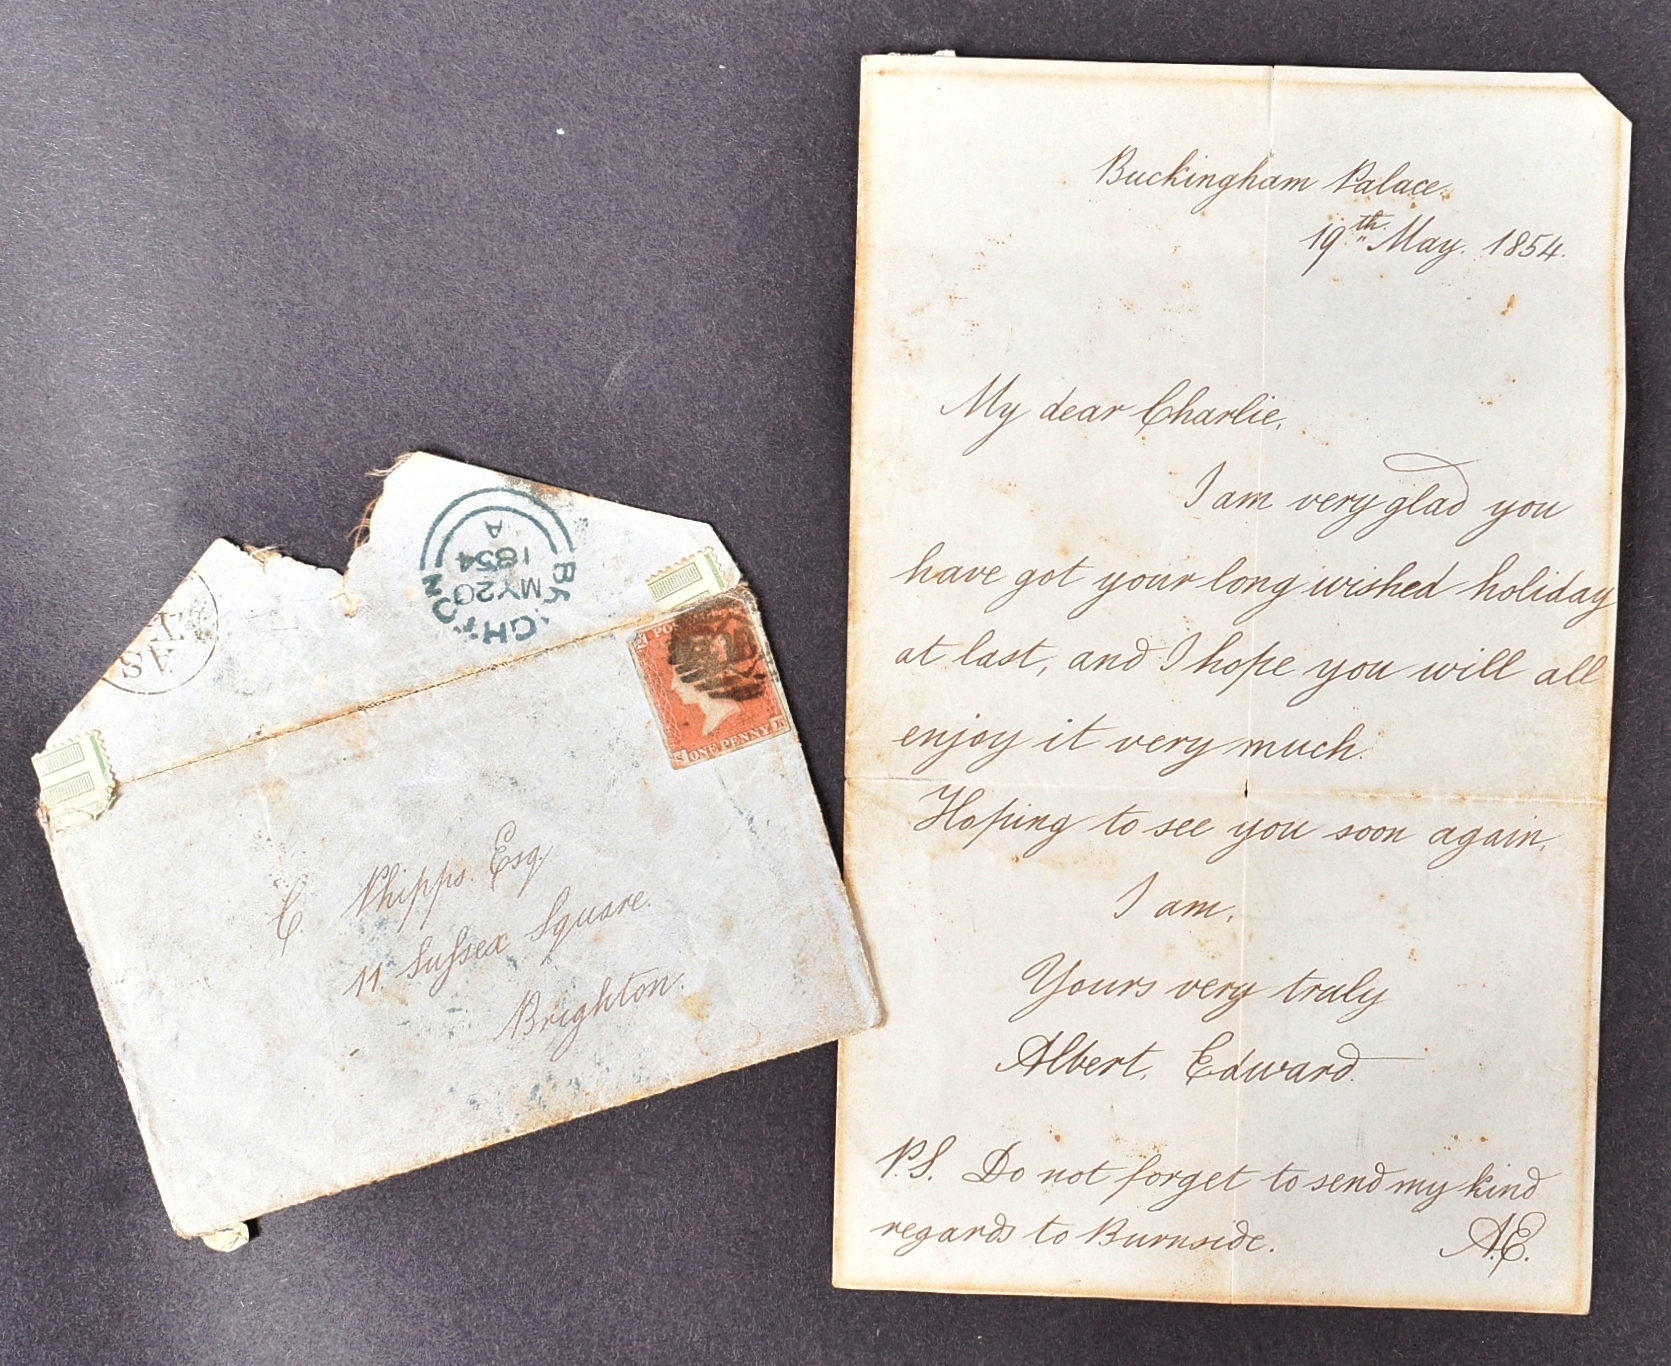 Buckingham Palace.
19th May. 1854.
My dear Charlie,
I am very glad you
have got your long wished holiday
at last, and I hope you will all
enjoy it very much.
Hoping to see you soon again,
I am,
Yours very truly
Albert, Edward.
P.S. Do not forget to send my kind
regards to Burnside.
A.E.
BRIGHTON
MY 20
1854
A
ONE PENNY
S
K
C. Phipps. Esq.
11. Sussex Square.
Brighton.